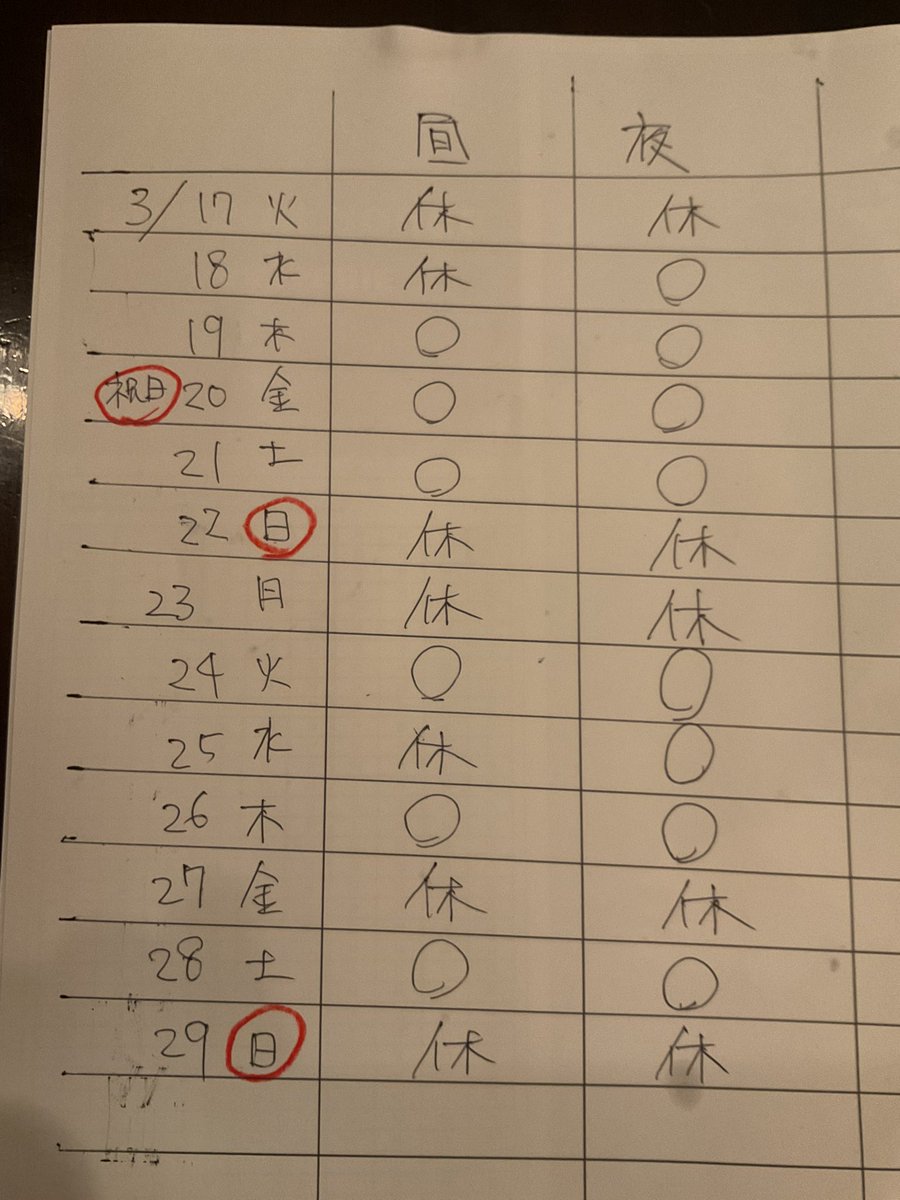 昼 夜
3/17 火 休 休
18 水 休 ○
19 木 ○ ○
祝日 20 金 ○ ○
21 土 ○ ○
22 日 休 休
23 月 休 休
24 火 ○ ○
25 水 休 ○
26 木 ○ ○
27 金 休 休
28 土 ○ ○
29 日 休 休